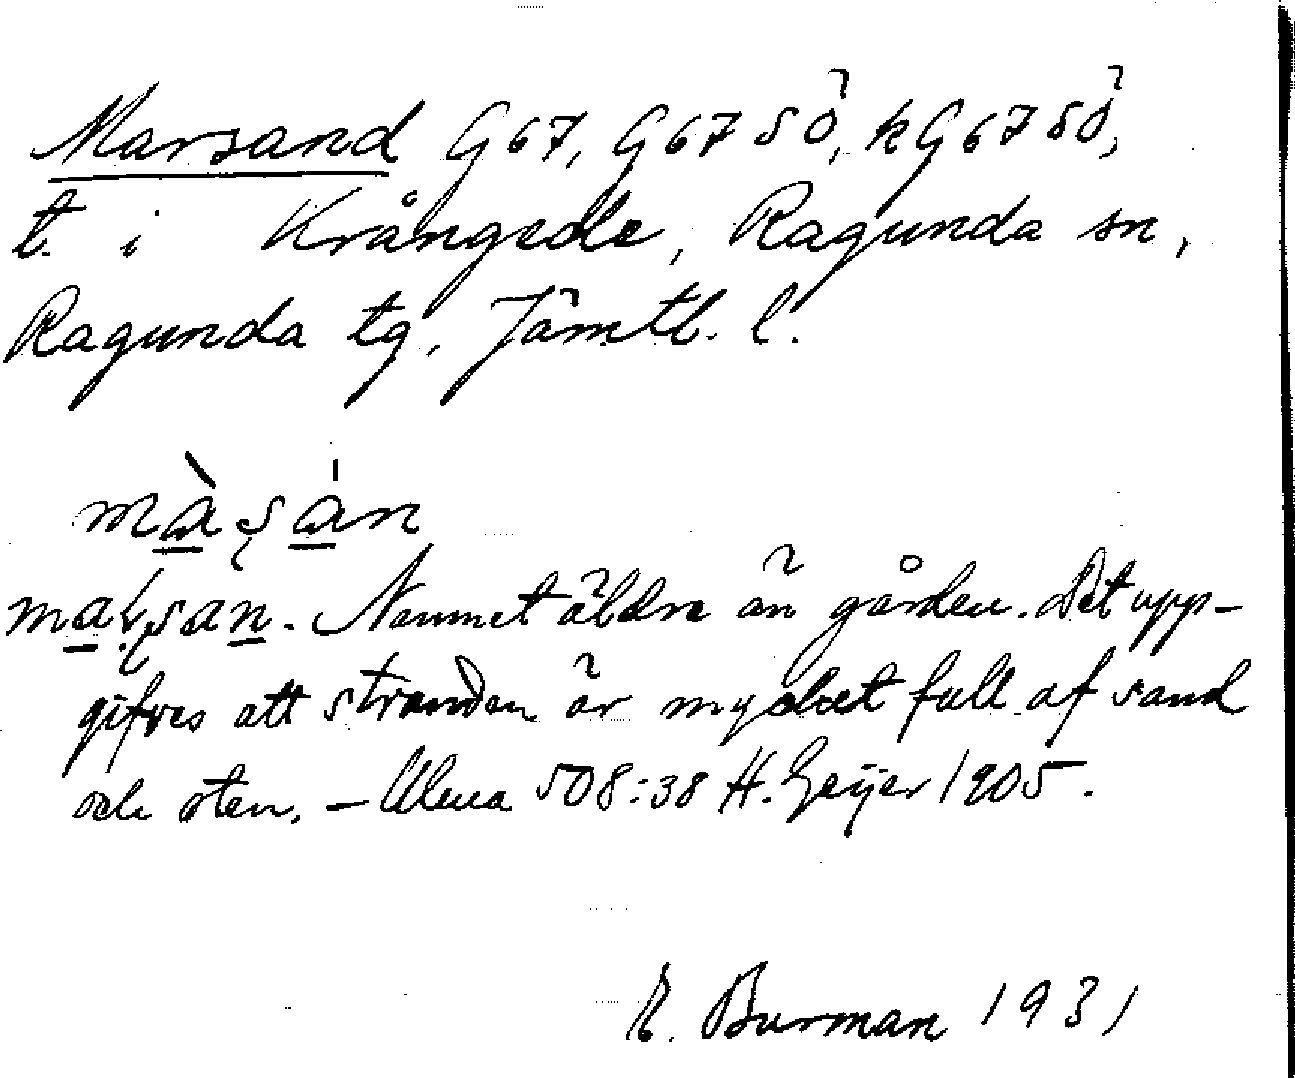 Marsand G67, G67 SÖ, kG67 SÖ,
t. i Krångede, Ragunda sn,
Ragunda tg, Jämtl. l.
màsa̍n
maṣan. Namnet äldre än gården. Det upp-
gifves att stranden är mycket full af sand
och sten. – Ulma 508:38 H. Geijer 1905.
E. Burman 1931